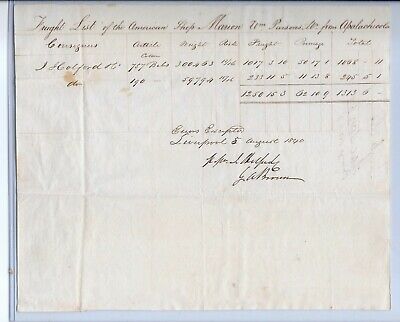 Freight List of the American Ship Marion Wm Parsons, Mr from Apalachicola
Consignees Article Weight Rate Freight Primage Total
Cotton
J Holford & Co 757 Bales 300463 1017 3 10 50 17 1 1068 - 11
do 190 - 59794 233 11 5 11 13 8 245 5 1
1250 15 3 62 10 9 1313 6 -
Errors Excepted
Liverpool 5 August 1840
J. Holford